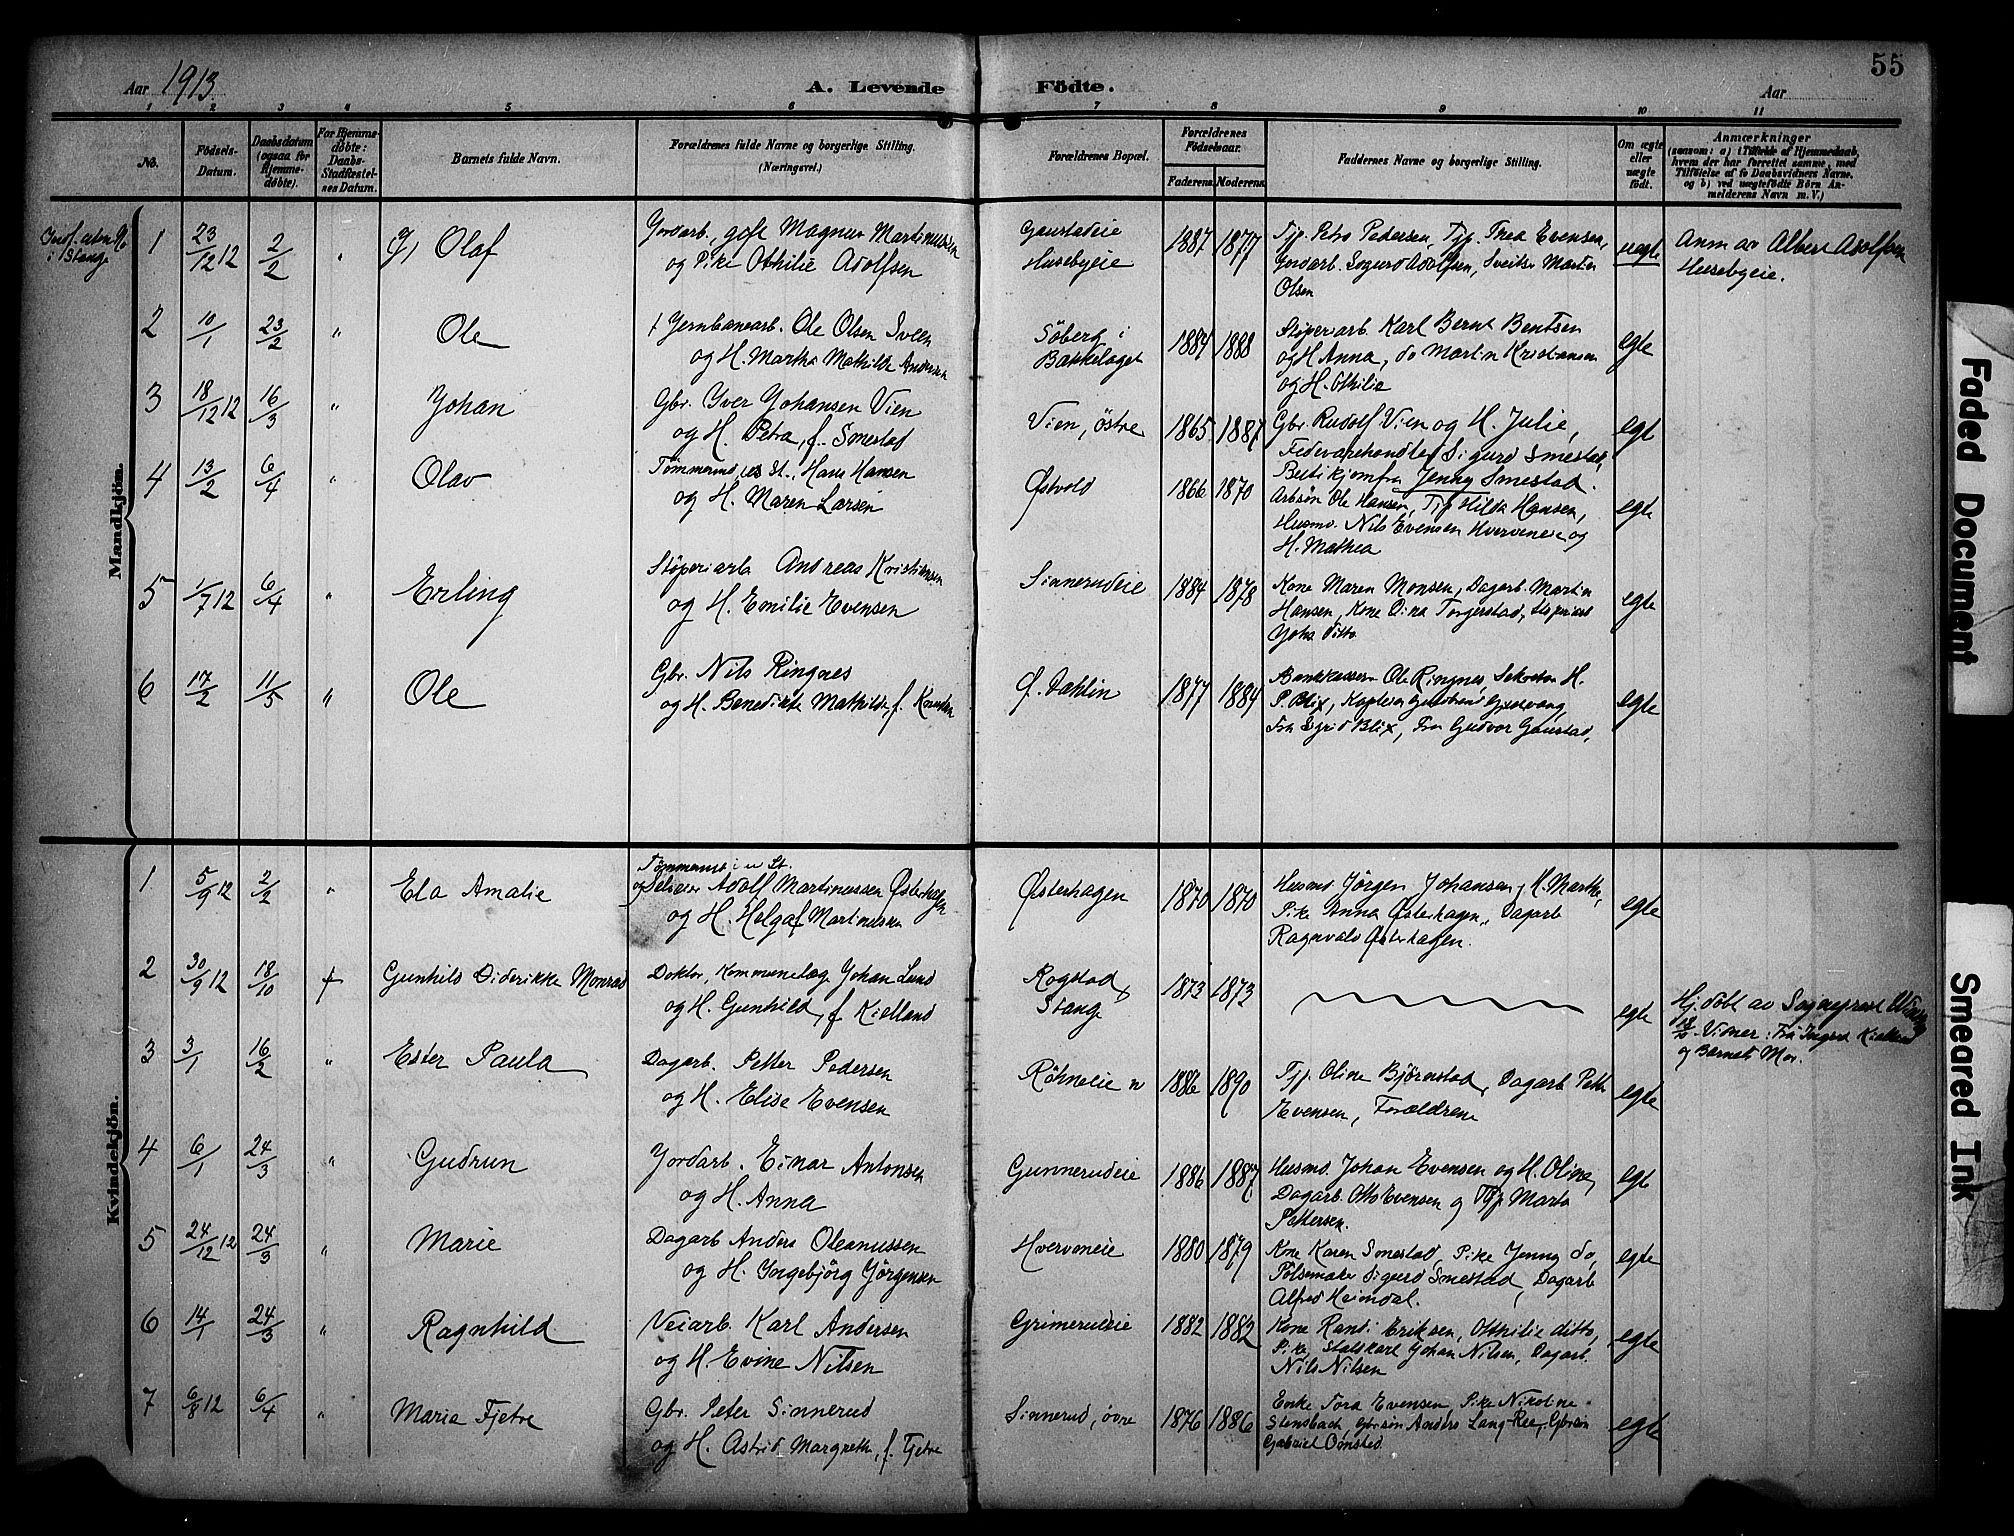 55
Aar 1913
A. Levende Födte.
Aar
1 2 3 4 5 6 7 8 9 10 11
No.
Födsels-
Datum.
Daabsdatum
(ogsaa for
Hjemme-
døbte).
For Hjemme-
døbte:
Daabs-
Stadfæstel-
ses Datum.
Barnets fulde Navn.
Forældrenes fulde Navne og borgerlige Stilling.
(Næringsvei.)
Forældrenes Bopæl.
Forældrenes
Födselsaar.
Faderens. Moderens.
Faddernes Navne og borgerlige Stilling.
Om ægte
eller
uægte
født.
Anmærkninger
(saasom: a) i Tilfælde af Hjemmedaab,
hvem der har forrettet samme, med
Tilföielse af to Daabsvidners Navne,
og b) ved uægtefödte Börn An-
melderens Navn m. V.)
Mandkjön.
i Stange
1 23/12 12 2/2 " Olaf
Jordarb., gift Magnus Martinussen
og Pike Othilie Adolfsen
Gaustadeie
Husebyeie
1887 1877
Tjp. Petra Pedersen, Tjp. Thea Evensen,
Jordarb. Sigurd Adolfsen, Sveitser Martin
Olsen
uegte
Anm av Albert Adolfsen
Husebyeie.
2 10/1 23/2 " Ole
Jernbanearb. Ole Olsen Sveen
og H. Martha Mathilde Andersen
Söberg i
Bækkelaget
1884 1888
Støperiarb Karl Bernt Bentsen
og H Anna, do Martin Kristiansen
og H. Othilie
egte
3 18/12 12 16/3 " Johan
Gbr. Iver Johansen Vien
og H. Petra, f. Smestad
Vien, østre
1865 1887
Gbr. Rudolf Vien og H. Julie,
Fedevarehandler Sigurd Smestad,
Jenny Smestad.
egt
4 13/2 6/4 " Olav
Hans Hansen
og H. Maren Larsen
Østvold
1866 1870
Arbsön Ole Hansen, Tjp Hilda Hansen,
Husmd. Nils Evensen Hverveneie og
H. Mathea
egte
5 1/7 12 6/4 " Erling
Støperiarb Andreas Kristiansen
og H. Emilie Evensen
Sinnerudeie
1884 1878
Kone Maren Monsen, Dagarb. Martin
Hansen, Kone Dina Torgerstad, Støperiarb
Johs ditto
egte
6 17/2 11/5 " Ole
Gbr. Nils Ringnes
og H. Benedikte Mathilde, f.
f. Dæhlin
1877 1884
Bankkasserer Ole Ringnes, Sekretær H.
P. Blix,
Fru Sigrid Blix, Fru Gudvor Gaustad,
egte
Kvindekjön.
1 5/9 12 2/2 " Ela Amalie
Adolf Martinussen Østerhagen
og H. Helga f Martinusen
Østerhagen
1870 1870
Husmd Jörgen Johansen, H. Marthe,
Pike Anna Østerhagen, Dagarb
Ragnvald Østerhagen.
egte
2 30/9 12 18/10 Gunhild Diderikke Monrad
Doktor, Kommunelæge Johan Lund
og H. Gunhild, f Kielland
Rogstad
Stange
1873 1873
egte
Hj. döbt av Sogneprest
Vidner: Fru Kielland
og Barnets Mor.
3 3/1 16/2 " Ester Paula
Dagarb. Petter Pedersen
og H. Elise Evensen
1886 1890
Tjp. Oline Björnstad, Dagarb Petter
Evensen, Forældrene
egte
4 6/1 24/3 " Gudrun
Jordarb. Einar Antonsen
og H. Anna
Gunnerudeie
1886 1887
Husmd. Johan Evensen og H. Oline,
Dagarb. Otto Evensen og Tjp. Marta
Pettersen.
egte
5 24/12 12 24/3 " Marie
Dagarb Anders Oleanussen
og H. Ingebjörg Jörgensen
Hverveneie
1880 1879
Kone Karen Smestad, Pike Jenny do,
Pölsemaker Sigurd Smestad, Dagarb
Alfred Heimdal.
egte
6 14/1 24/3 " Ragnhild
Veiarb. Karl Andersen
og H Evine Nilsen
Grimerudeie
1882 1882
Kone Randi Eriksen, Otthilie ditto,
Pike, Stalskarl Johan Nilsen, Dagarb.
Nils Nilsen
egte
7 6/8 12 6/4 " Maria Fjetre
Gbr. Peter Sinnerud
og H. Astrid Margrethe, f. Fjetre
Sinnerud, övre
1876 1886
Enke Tora Evensen, Pike Nikoline
Stensbach, Gbrsön Anders Lang-Ree, Gbrsön
Gabriel Oònsted.
egte
Faded Document
Smeared Ink